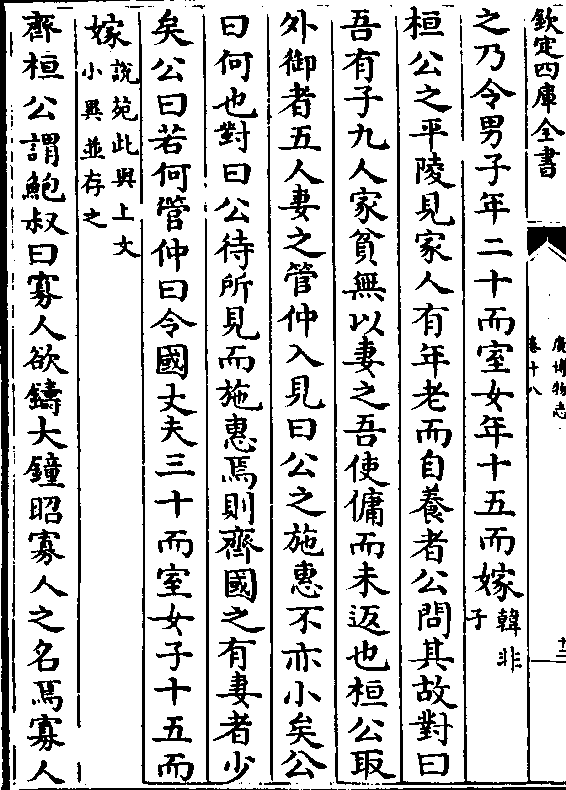 欽定四庫全書
廣博物志
卷十八
十二
之乃令男子年二十而室女年十五而嫁韓非
子
桓公之平陵見家人有年老而自養者公問其故對曰
吾有子九人家貧無以妻之吾使傭而未返也桓公取
外御者五人妻之管仲入見曰公之施惠不亦小矣公
曰何也對曰公待所見而施惠焉則齊國之有妻者少
矣公曰若何管仲曰令國丈夫三十而室女子十五而
嫁說苑此與上文
小異並存之
齊桓公謂鮑叔曰寡人欲鑄大鐘昭寡人之名焉寡人